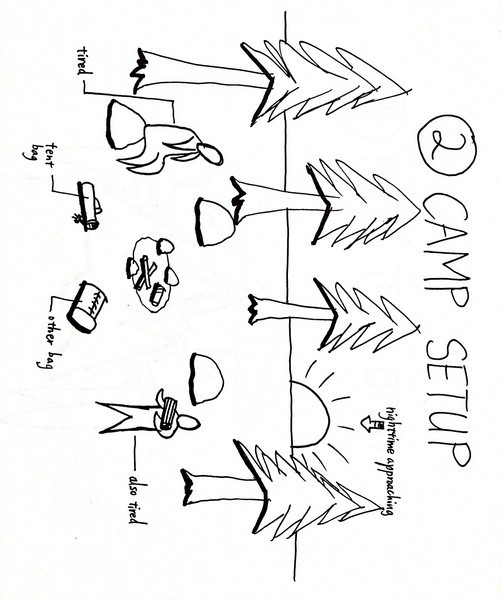 2 CAMP SETUP
nighttime approaching
tired
tent
bag
other bag
also tired